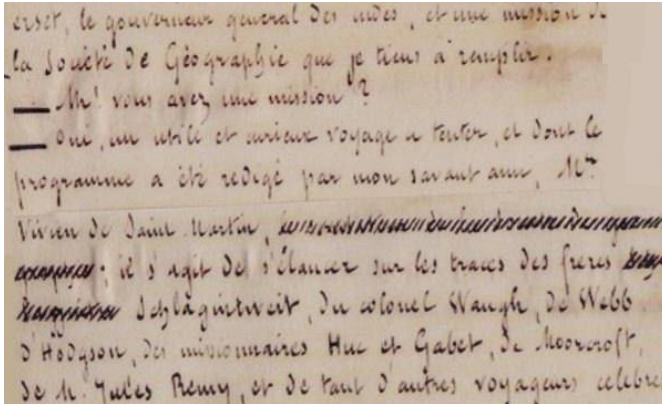 erset, le gouverneur general des indes, et une mission de
la Société de Géographie que je tiens à remplir.
— Mr! vous avez une mission ?
— Oui, un utile et curieux voyage a tenter, et dont le
programme a été redigé par mon savant ami, Mr
Vivien de Saint Martin,
; il s'agit de s'élancer sur les traces des freres
Schlagintweit, du colonel Waugh, de Webb
d'Hodgson, des missionnaires Huc et Gabet, de Moorcroft,
de M. Jules Remy, et de tant d'autres voyageurs célebre